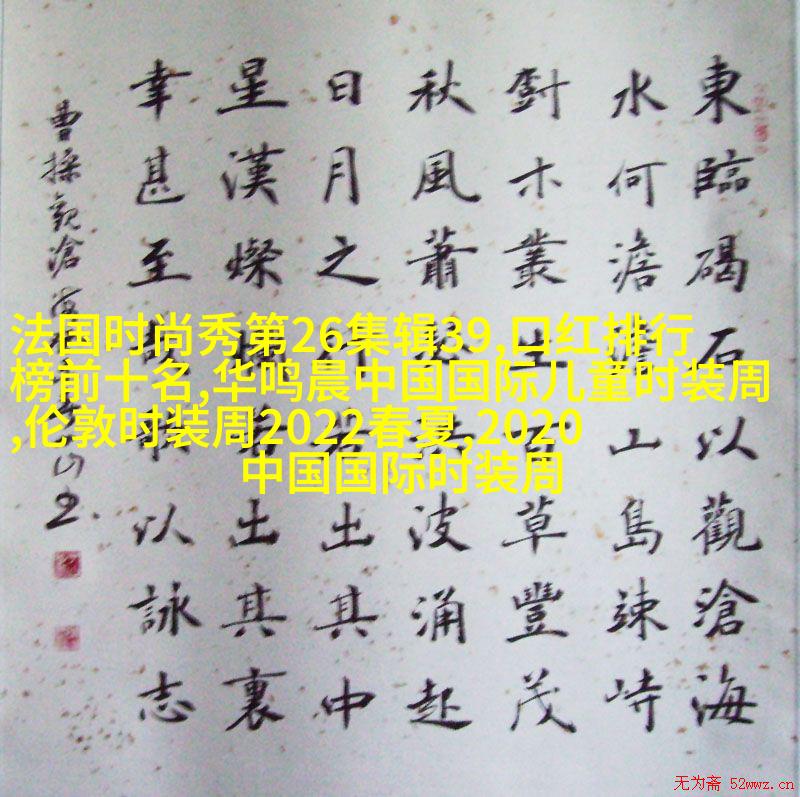 東臨碣石以觀滄海
水何澹澹山島竦峙
尌木叢生百草豐茂
秋風蕭瑟洪波涌起
日月之行若出其中
星漢燦爛若出其裏
幸甚至哉歌以詠志
曹操觀滄海
山书
法国时尚秀第26集辑39,口红排行
榜前十名,华鸣晨中国国际儿童时装周
,伦敦时装周2022春夏,2020
中国国际时装周
无为斋 52wwz.cn